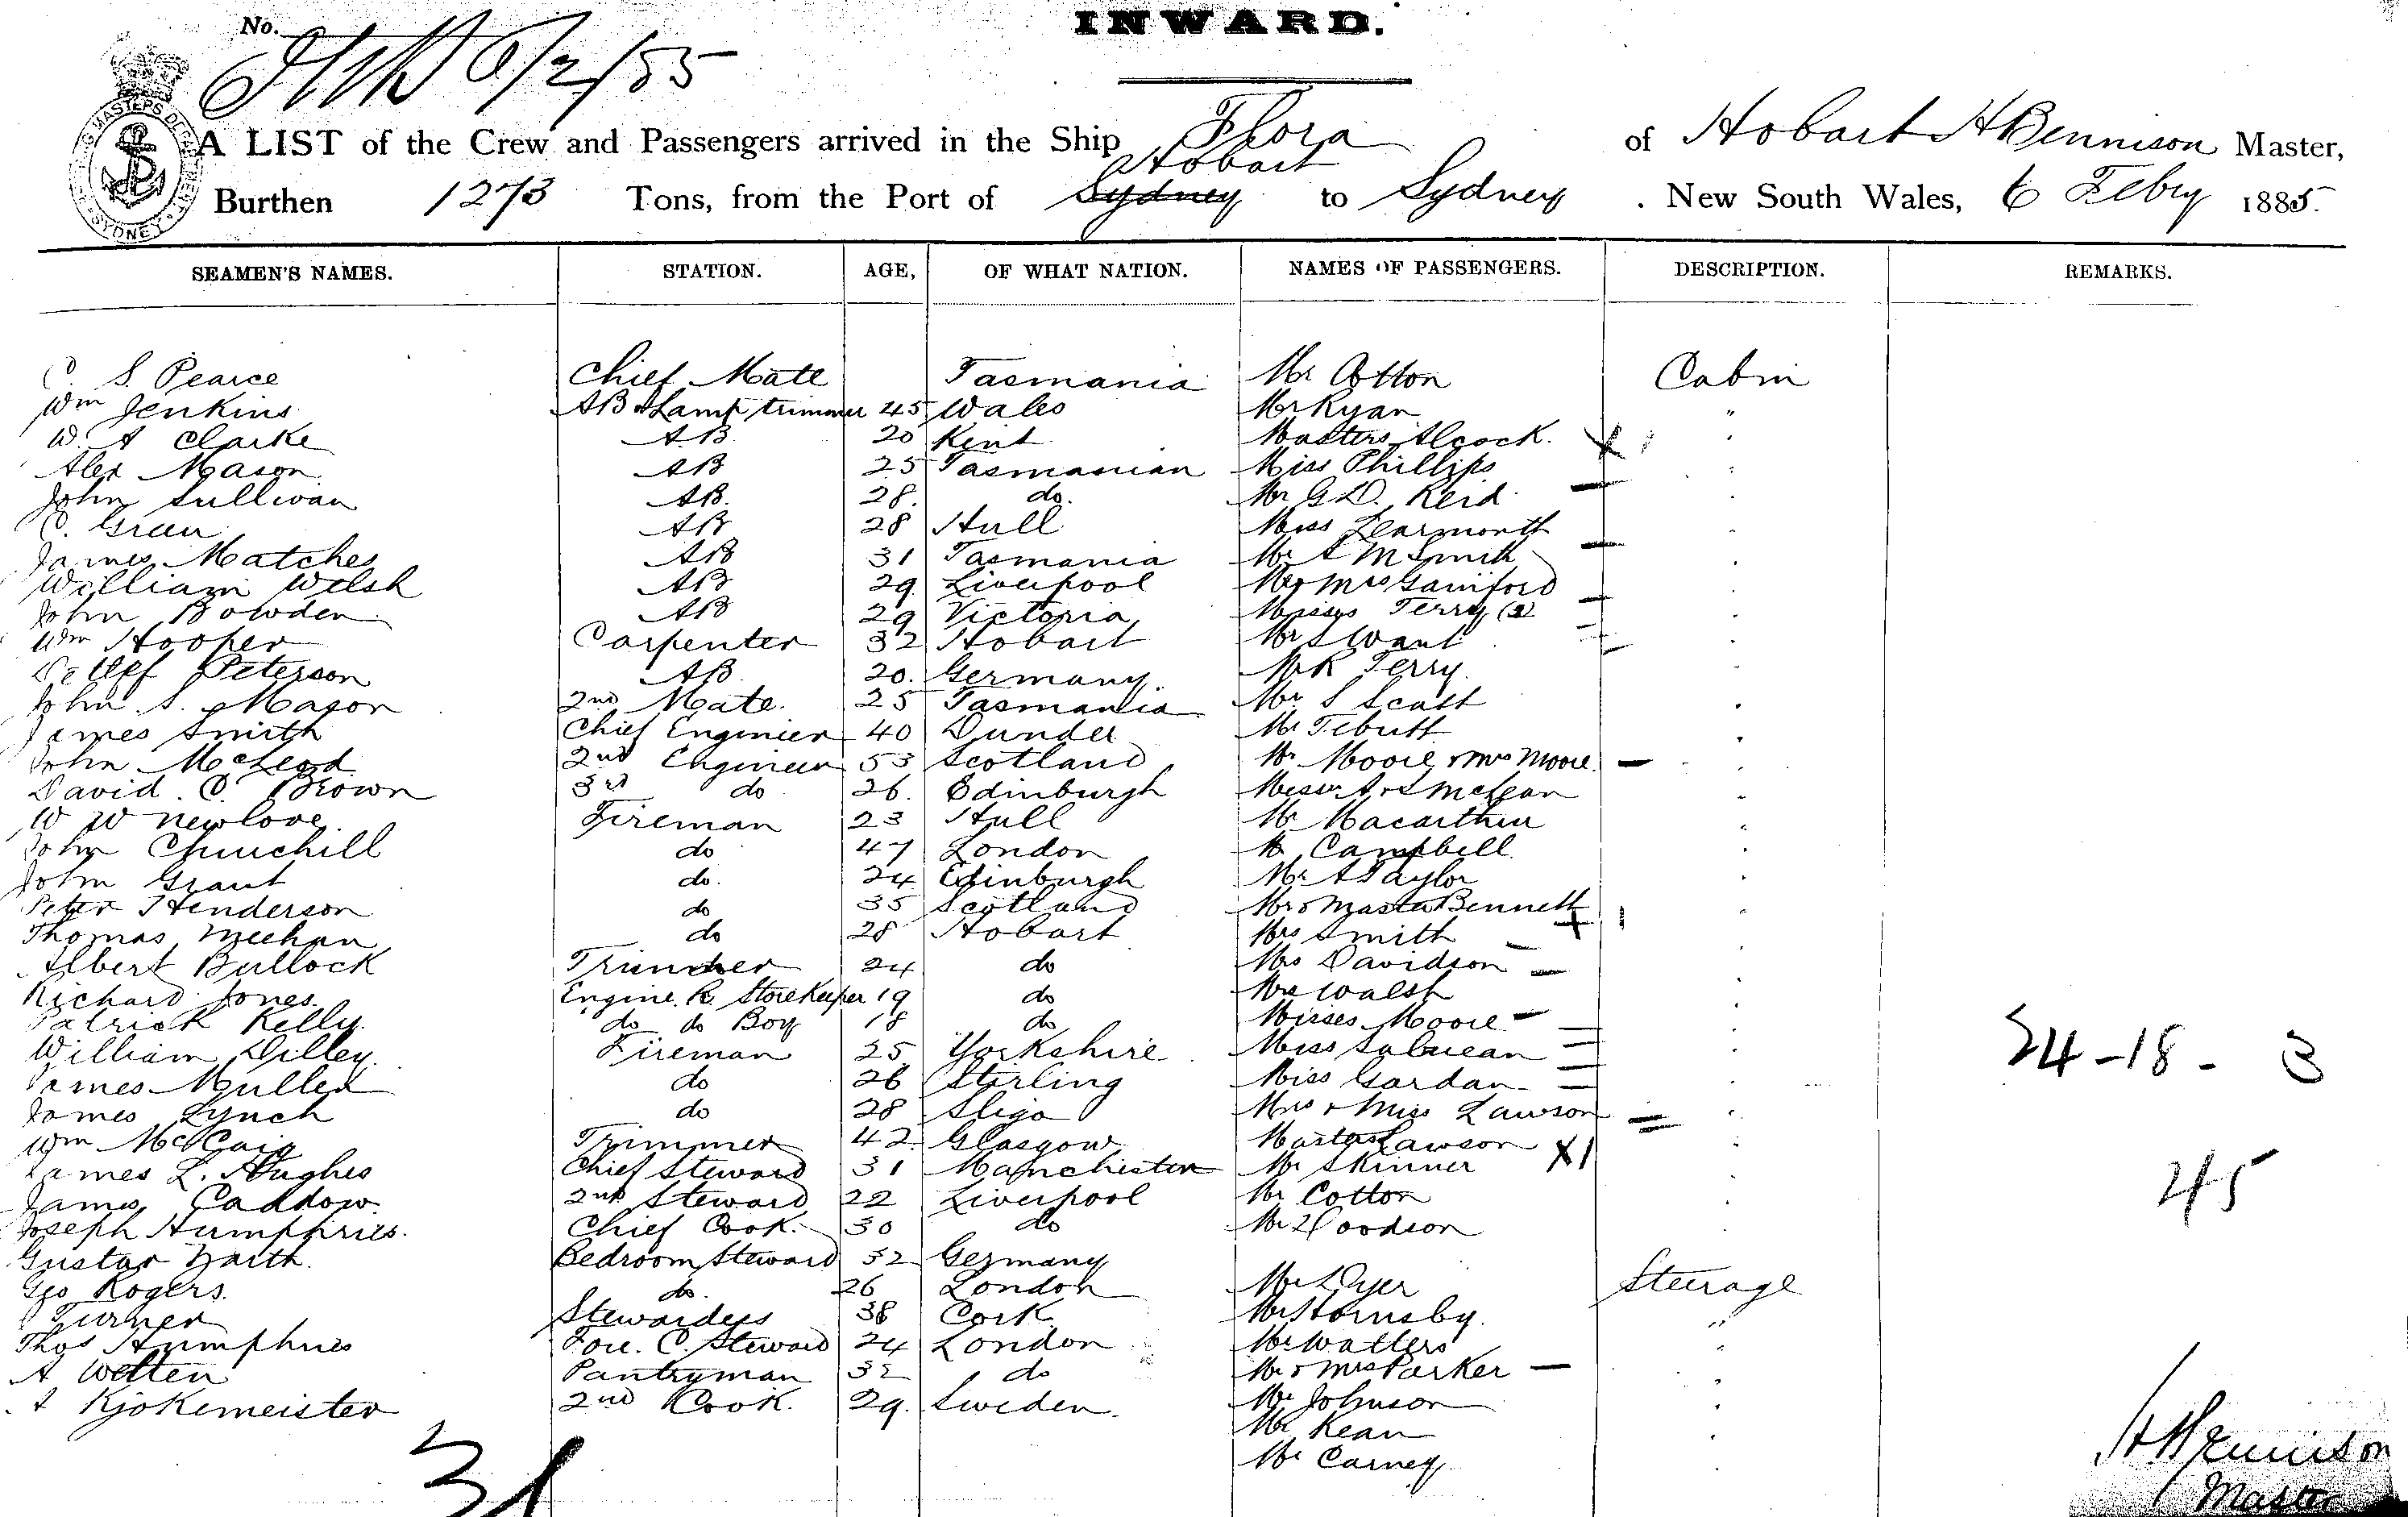 INWARD.
No.
6/2/85
SHIPPING MASTERS DEPARTMENT SYDNEY
A LIST of the Crew and Passengers arrived in the Ship Flora of Hobart H Bennison Master,
Hobart
Burthen 1273 Tons, from the Port of Sydney to Sydney . New South Wales, 6 Febry 1885.
SEAMEN'S NAMES. STATION. AGE, OF WHAT NATION. NAMES OF PASSENGERS. DESCRIPTION. REMARKS.
C. S. Pearce Chief Mate Tasmania Mr Cotton Cabin
Wm Jenkins AB & Lamp trimmer 45 Wales Mr Ryan "
W. A Clarke A.B 20 Kent Masters Alcock. X
Alex Mason AB 25 Tasmanian Miss Phillips
John Sullivan AB. 28. do. Mr G.D. Reid
C. Green AB 28 Hull Miss Learmonth
James Matches AB 31 Tasmania Mr A M Smith
William Welsh AB 29 Liverpool Mr & Mrs
John Bowden AB 29 Victoria Misses Terry (2)
Wm Hooper Carpenter 32 Hobart Mr S Want
Detlef Peterson AB 20. Germany. Mr R Terry.
John S. Mason 2nd Mate. 25 Tasmania Mr S Scott
James Smith Chief Engineer 40 Dundee Mr Tebutt
John McLeod 2nd Engineer 53 Scotland Mr Moore & Mrs Moore
David C. Brown 3rd do 26. Edinburgh Messrs A & S McLean
W W Newlove Fireman 23 Hull Mr Macarthur
John Churchill do 47 London Mr Campbell
John Grant do. 24 Edinburgh Mr A Taylor
Peter Henderson do 35 Scotland Mrs & Master Bennett
Thomas Meehan do 28 Hobart Mrs Smith
Albert Bullock Trimmer 24 do Mrs Davidson
Richard Jones. Engine R. StoreKeeper 19 do Mrs Walsh
Patrick Kelly. do do Boy 18 do Misses Moore
William Dilley. Fireman 25 Yorkshire Miss
James Mullen do 26 Stirling Miss Gordan
James Lynch do 28 Sligo Mrs & Miss Lawson
Wm McCaig Trimmer 42 Glasgow Master Lawson X1
James L. Hughes Chief Steward 31 Manchester Mr Skinner
James Caddow. 2nd Steward 22 Liverpool Mr Cotton
Joseph Humphries. Chief Cook. 30 do Mr Woodson
Gustav Barth. Bedroom Steward 32 Germany
Geo Rogers. do. 26 London Mr L Dyer Steerage
Turner Stewardess 38 Cork Mr Hornsby. "
Thos Humphries Fore. C. Steward 24 London Mr Watters "
A Wetten Pantryman 32 do Mr & Mrs Parker
A Kjokemeister 2nd Cook. 29. Sweden. Mr Johnson
Mr Kean
Mr Carney.
24-18-3
45
H Bennison
Master